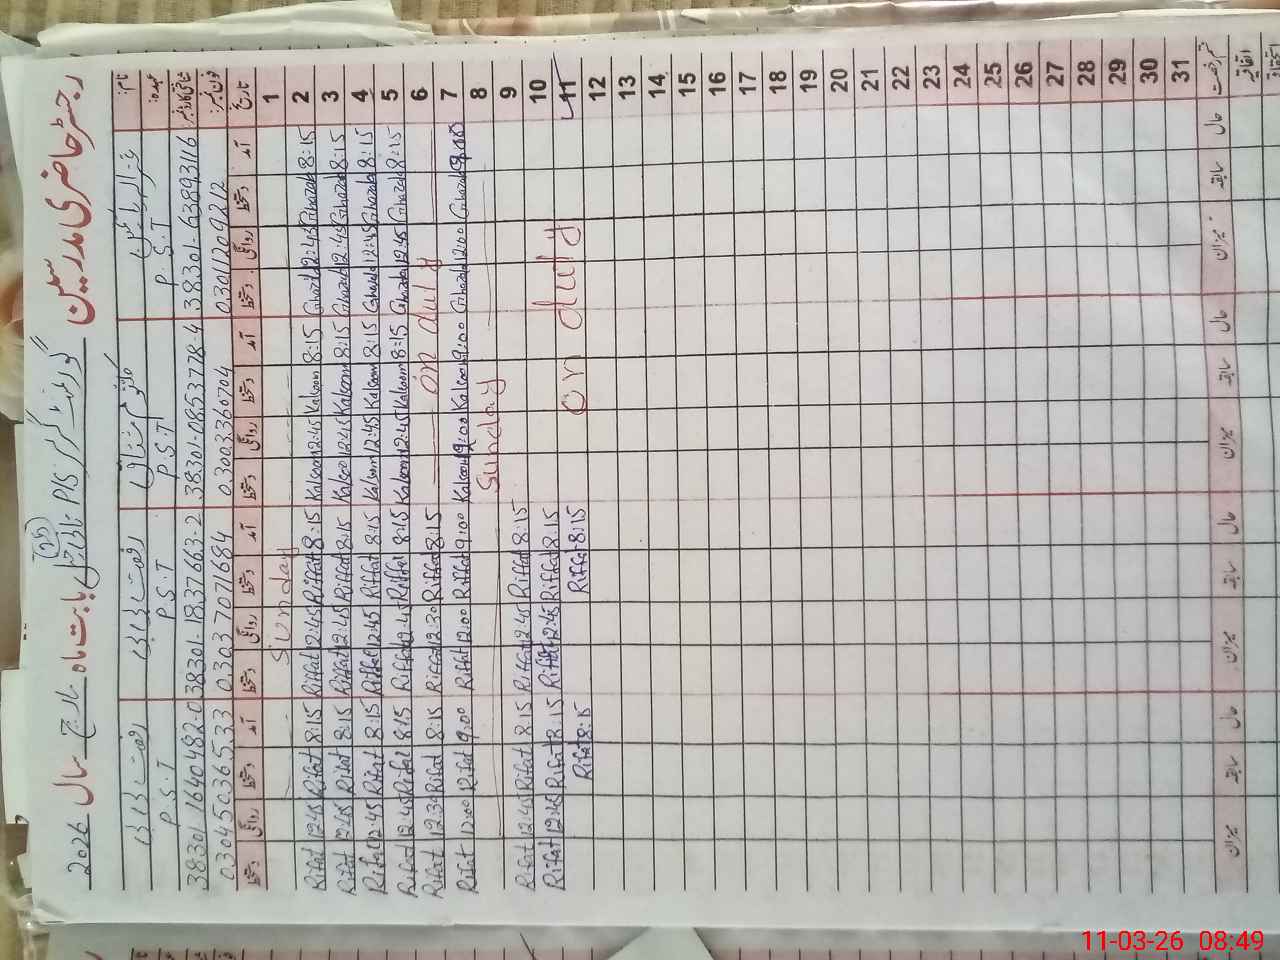 رجسٹر حاضری مدرسین گورنمنٹ گرلز P/S بابت ماہ مارچ سال 2026
نام:
عہدہ: P.S.T P.S.T P.S.T P.S.T
شناختی کارڈ نمبر 38301-6389311 6 38301-0853778-4 38301-1837663-2 38301-1640482-0
فون نمبر: 03011209212 03003360704 03037071684 03045036533
تاریخ آمد دستخط روانگی دستخط آمد دستخط روانگی دستخط آمد دستخط روانگی دستخط آمد دستخط روانگی دستخط
1 Sunday
2 8:15 Ghazala 12:45 Ghazala 8:15 Kalsoom 12:45 Kalsoom 8:15 Riffat 12:45 Riffat 8:15 Rifat 12:45 Rifat
3 8:15 Ghazala 12:45 Ghazala 8:15 Kalsoom 12:45 Kalsoo 8:15 Riffat 12:45 Riffat 8:15 Rifat 12:45 Rifat
4 8:15 Ghazala 12:45 Ghazala 8:15 Kalsoom 12:45 Kalsoom 8:15 Riffat 12:45 Riffat 8:15 Rifat 12:45 Rifat
5 8:15 Ghazala 12:45 Ghazala 8:15 Kalsoom 12:45 Kalsoom 8:15 Riffat 12:45 Riffat 8:15 Rifat 12:45 Rifat
6 on duty 8:15 Riffat 12:30 Riffat 8:15 Rifat 12:30 Rifat
7 9:00 Ghazala 12:00 Ghazala 9:00 Kalsoom 9:00 Kalsoom 9:00 Riffat 12:00 Riffat 9:00 Rifat 12:00 Rifat
8 Sunday
9 8:15 Riffat 12:45 Riffat 8:15 Rifat 12:45 Rifat
10 8:15 Riffat 12:45 Riffat 8:15 Rifat 12:45 Rifat
11 on duty 8:15 Riffat 8:15 Rifat
12
13
14
15
16
17
18
19
20
21
22
23
24
25
26
27
28
29
30
31
قسم رخصت حال سابقہ میزان حال سابقہ میزان حال سابقہ میزان حال سابقہ میزان
اتفاقیہ
11-03-26 08:49